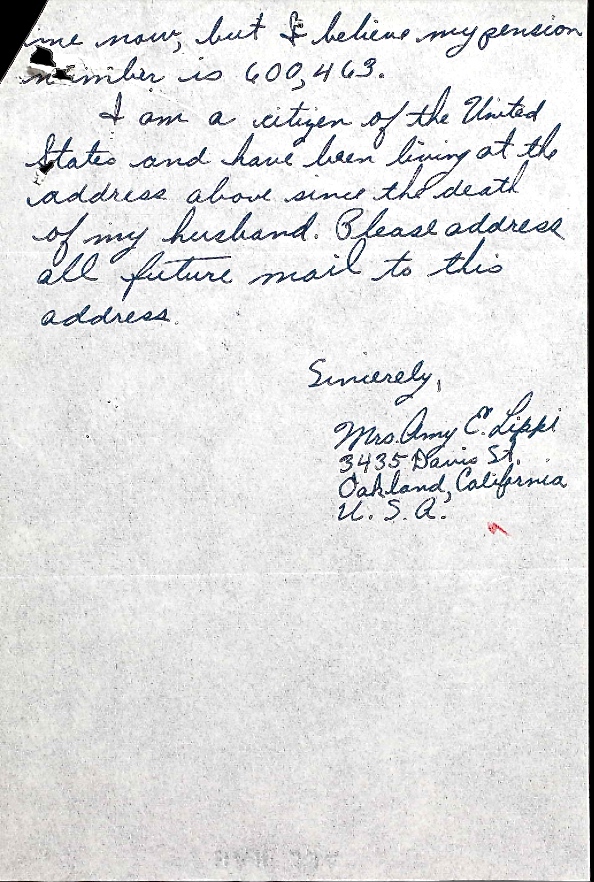 me now, but I believe my pension
number is 600,463.
I am a citizen of the United
States and have been living at the
address above since the death
of my husband. Please address
all future mail to this
address.
Sincerely,
Mrs. Amy E. Lippi
3435 Davis St.
Oakland, California
U. S. A.